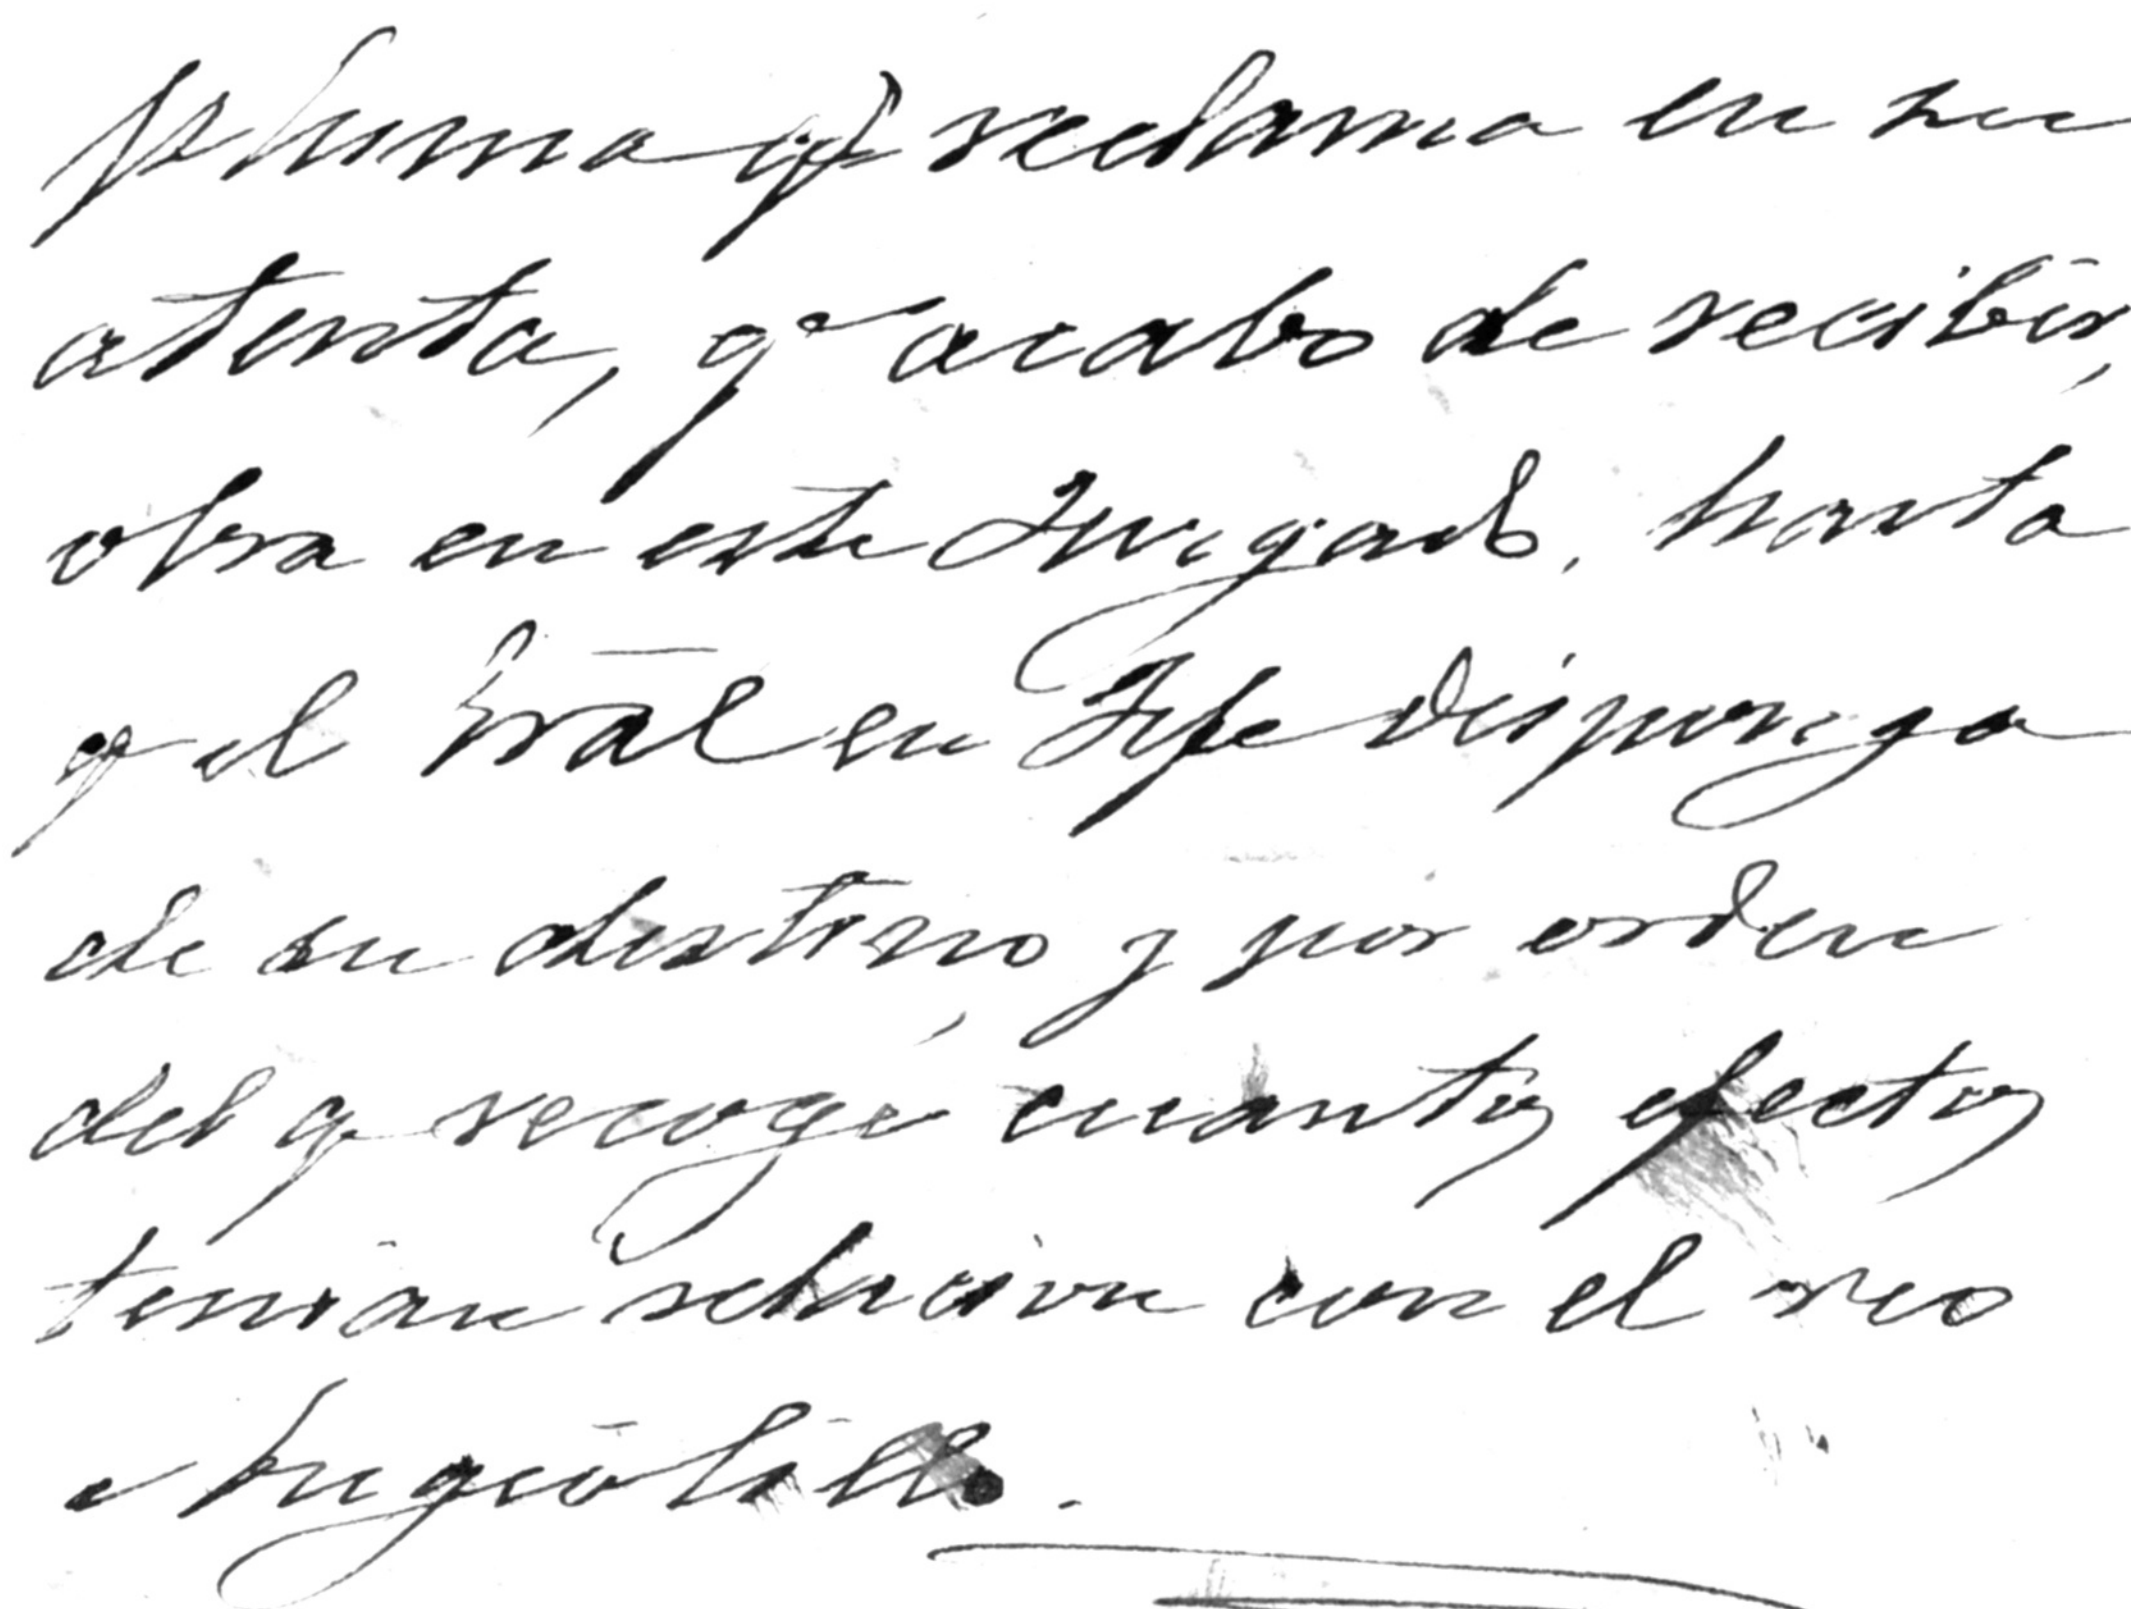 pluma qe reclama en su
atenta, qe acabo de recibir,
obra en este Juzgado, hasta
q el Gral en Jefe disponga
de su destino, y por orden
del q recogí cuantos efectos
tenían relación con el reo
Angiolillo.